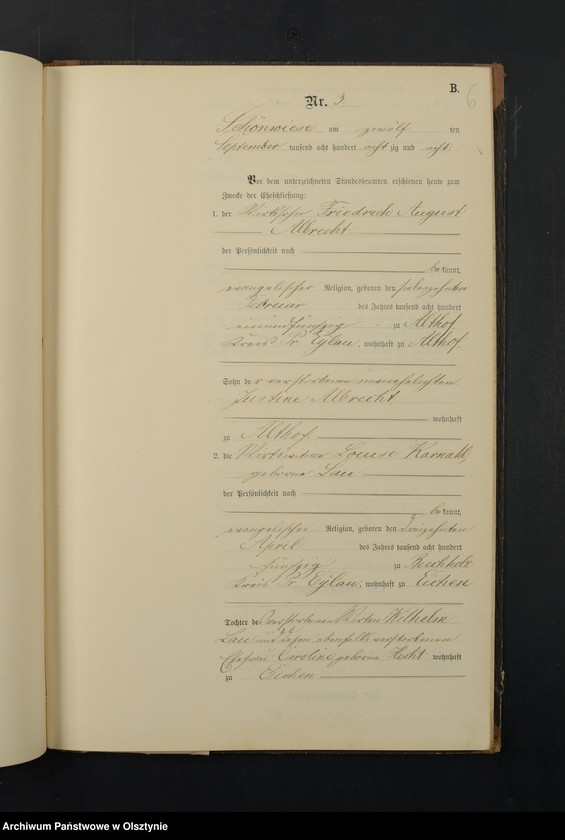 B.
6
Nr. 3.
Schönwiese am zwölf ten
September tausend acht hundert acht zig und acht.
Vor dem unterzeichneten Standesbeamten erschienen heute zum
Zwecke der Eheschließung:
1. der Friedrich August
Albrecht
der Persönlichkeit nach
be kannt,
evangelischer Religion, geboren den siebenzehnten
Februar des Jahres tausend acht hundert
neunundfünfzig zu Althof
Kreis Pr. Eylau, wohnhaft zu Althof
Sohn der verstorbenen unverehelichten
Justine Albrecht
wohnhaft
zu Althof
2. die Louise Karnahl,
geborene Lau
der Persönlichkeit nach
be kannt,
evangelischer Religion, geboren den dreizehnten
April des Jahres tausend acht hundert
fünfzig zu Buchholz
Kreis Pr. Eylau, wohnhaft zu Eichen
Tochter des verstorbenen Wirten Wilhelm
Lau und dessen ebenfalls verstorbenen
Ehefrau Caroline geborne Hecht wohnhaft
zu Eichen
Archiwum Państwowe w Olsztynie